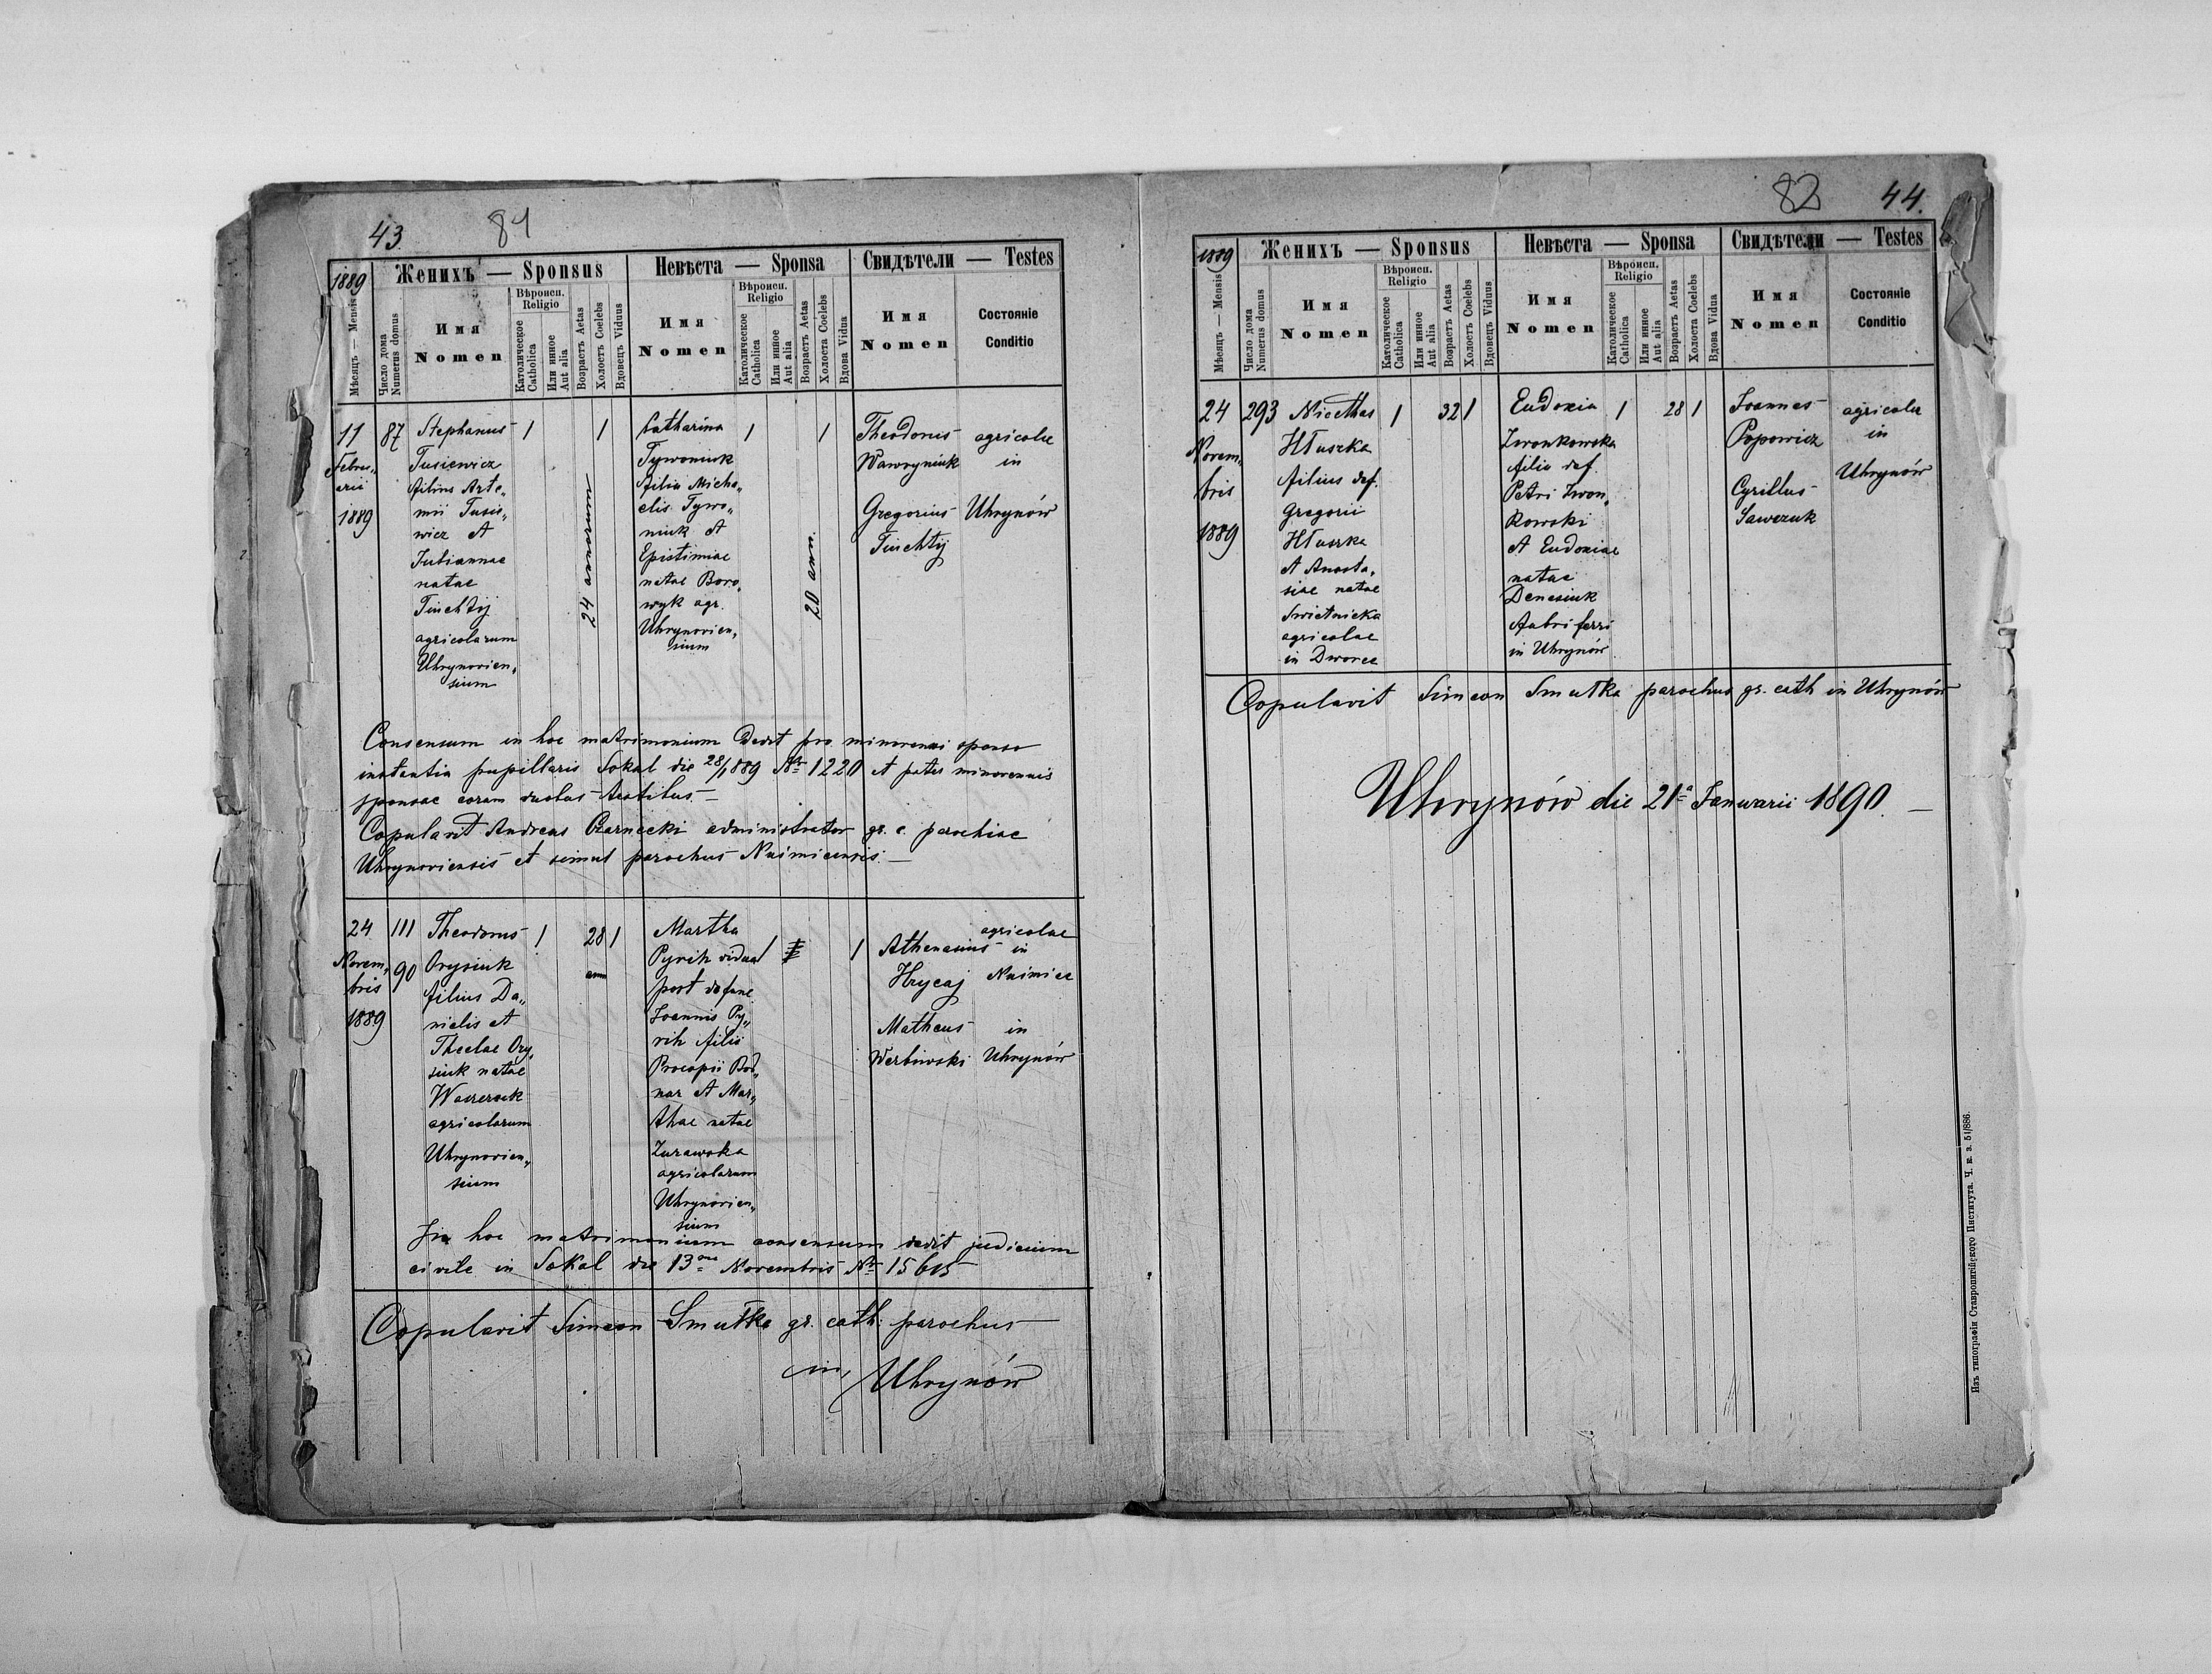 43
84
1889
Женихъ — Sponsus
Невѣста — Sponsa
Свидѣтели — Testes
Мѣсяцъ — Mensis
Число дома
Numerus domus
Имя
Nomen
Вѣроисп.
Religio
Католическое
Catholica
Или инное
Aut alia
Возрастъ Aetas
Холостъ Coelebs
Вдовецъ Viduus
Имя
Nomen
Вѣроисп.
Religio
Католическое
Catholica
Или инное
Aut alia
Возрастъ Aetas
Холоста Coelebs
Вдова Vidua
Имя
Nomen
Состояніе
Conditio
11
Febru„
arii
1889
87
Stephanus
Tusiewicz
filius Arte„
mii Tusie„
wicz et
Juliannae
natae
Tinchtij
agricolarum
Uhrynovien„
sium
1
24 annorum
1
Catharina
Tywoniuk
filia Micha„
elis Tywo„
niuk et
Epistimiae
natae Boro„
wyk agr.
Uhrynovien„
sium
1
20 ann.
1
Theodorus
Wawryniuk
Gregorius
Tinchtij
agricolae
in
Uhrynów
Consensum in hoc matrimonium dedit pro minorenni sponso
instantia pupillaris Sokal die 28/1 889 Nr 1220 et pater minorennis
sponsae coram duobus testibus. —
Copulavit Andreas Czarnecki administrator gr. c. parochiae
Uhrynoviensis et simul parochus Nuśmicensis. —
24
Novem„
bris
1889
111
90
Theodorus
Orysiuk
filius Da„
nielis et
Theclae Ory„
siuk natae
agricolarum
Uhrynovien„
sium
1
28
ann
1
Martha
Pyrih vidua
post defunc.
Joannis Py„
rih filia
Procopii Bod„
nar et Mar„
thae natae
Zurawska
agricolarum
Uhrynovien„
sium
1
1
Athanasius
Hrycaj
Matheus
Werbiwski
agricolae
in
Nuśmice
in
Uhrynów
In hoc matrimonium consensum dedit judicium
civile in Sokal die 13 Novembris Nr 15615
Copulavit Simeon Smutka gr. cath. parochus
in Uhrynów
82
44.
1889
Женихъ — Sponsus
Невѣста — Sponsa
Свидѣтели — Testes
Мѣсяцъ — Mensis
Число дома
Numerus domus
Имя
Nomen
Вѣроисп.
Religio
Католическое
Catholica
Или инное
Aut alia
Возрастъ Aetas
Холостъ Coelebs
Вдовецъ Viduus
Имя
Nomen
Вѣроисп.
Religio
Католическое
Catholica
Или инное
Aut alia
Возрастъ Aetas
Холоста Coelebs
Вдова Vidua
Имя
Nomen
Состояніе
Conditio
24
Novem„
bris
1889
293
Nicethas
Hłuszka
filius def.
Gregorii
Hłuszka
et Anasta„
siae natae
Swietnicka
agricolae
in Dworce
1
32
1
Eudoxia
Zwonkowska
filia def.
Petri Zwon„
kowski
et Eudoxiae
natae
Denesiuk
fabri ferri
in Uhrynów
1
28
1
Joannes
Popowicz
Cyrillus
Sawczuk
agricolae
in
Uhrynów
Copulavit Simeon Smutka parochus gr. cath in Uhrynów
Uhrynów die 21a Januarii 1890. —
Изъ типографіи Ставропигійского Института. Ч. к. з. 51/886.